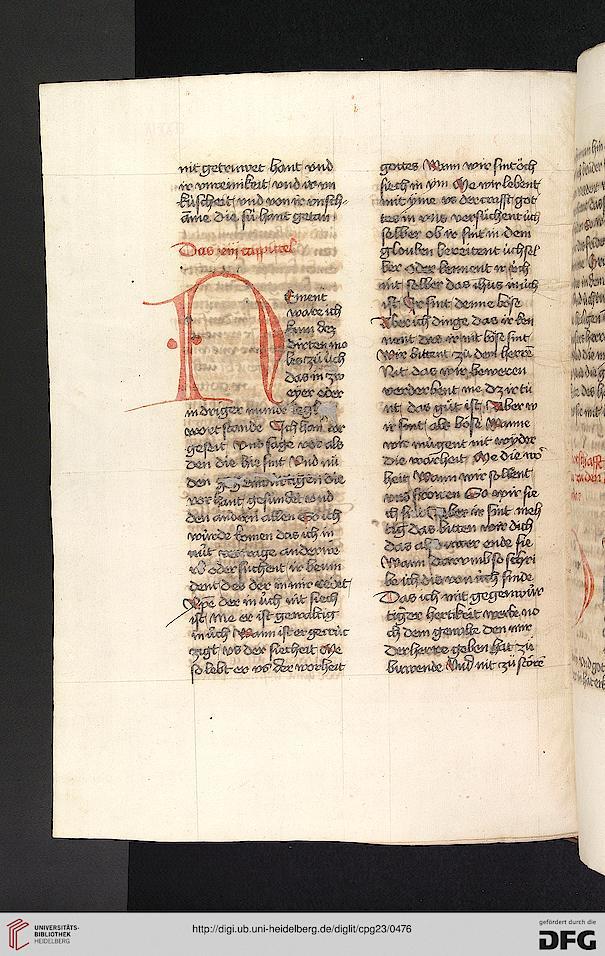 nit getruwet hant vnd
ir vnreinikeit vnd ir vn
küscheit vnd von ir vnsch-
ame die sü hant getan
Das xiij cappittel
N
Ement
ware ich
kum dez
dirten mo
les zü üch
das in zw
eyer oder
in driger munde
wort stande Ich han vor
geseit vnd sage vor als
den die hie sint vnd nü
den gegenwurtigen die
vor hant gesündet vnd
den andern allen So ich
würde komen das ich in
nüt vertrage anderwe
oder süchent ir bewin
dent des der in mir redet
xpc der in üch nit siech
ist me er ist gewaltig
in üch wann ist er gecrüc
ziget vs der siecheit me
so lebt er vs der worheit
gottes wann wir sint öch
siech in ym Me wir lebent
mit yme vs der crafft got
tes in vns versüchent üch
selber ob ir sint in dem
glouben bereitent üchsel
ber oder kennent ir üch
nit selber das ihus in üch
ist Ir sint denne böse
Aber ich dinge das ir ken
nent das ir nit böse sint
Wir bittent zü dem herre
Nit das wir beweren
verderbent me dz ir tü
nt das güt ist Aber w
ir sint als böse wanne
wir mügent nit wyder
die warheit Me die wor
heit Wann wir
vns fröwen So wir sie
ch sint Aber ir sint meh
tig das bitten wir üch
das ende sie
Wann darvmb so schri
be ich dis von üch
Das ich nit gegenwür
tiger hertikeit werbe no
ch dem gewalte den mir
der herre geben hat zü
buwende Vnd nit zü störe
UNIVERSITÄTS-
BIBLIOTHEK
HEIDELBERG
http://digi.ub.uni-heidelberg.de/diglit/cpg23/0476
gefördert durch die
DFG